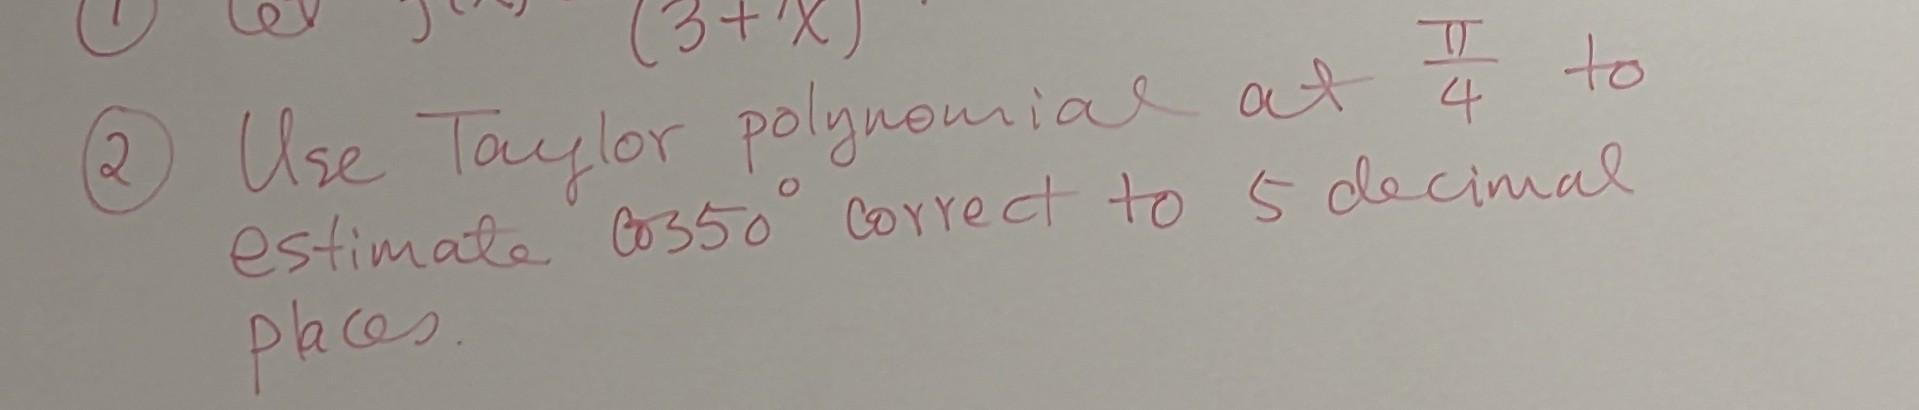 ① Let (3+x)
② Use Taylor polynomial at π/4 to
estimate cos50° correct to 5 decimal
places.